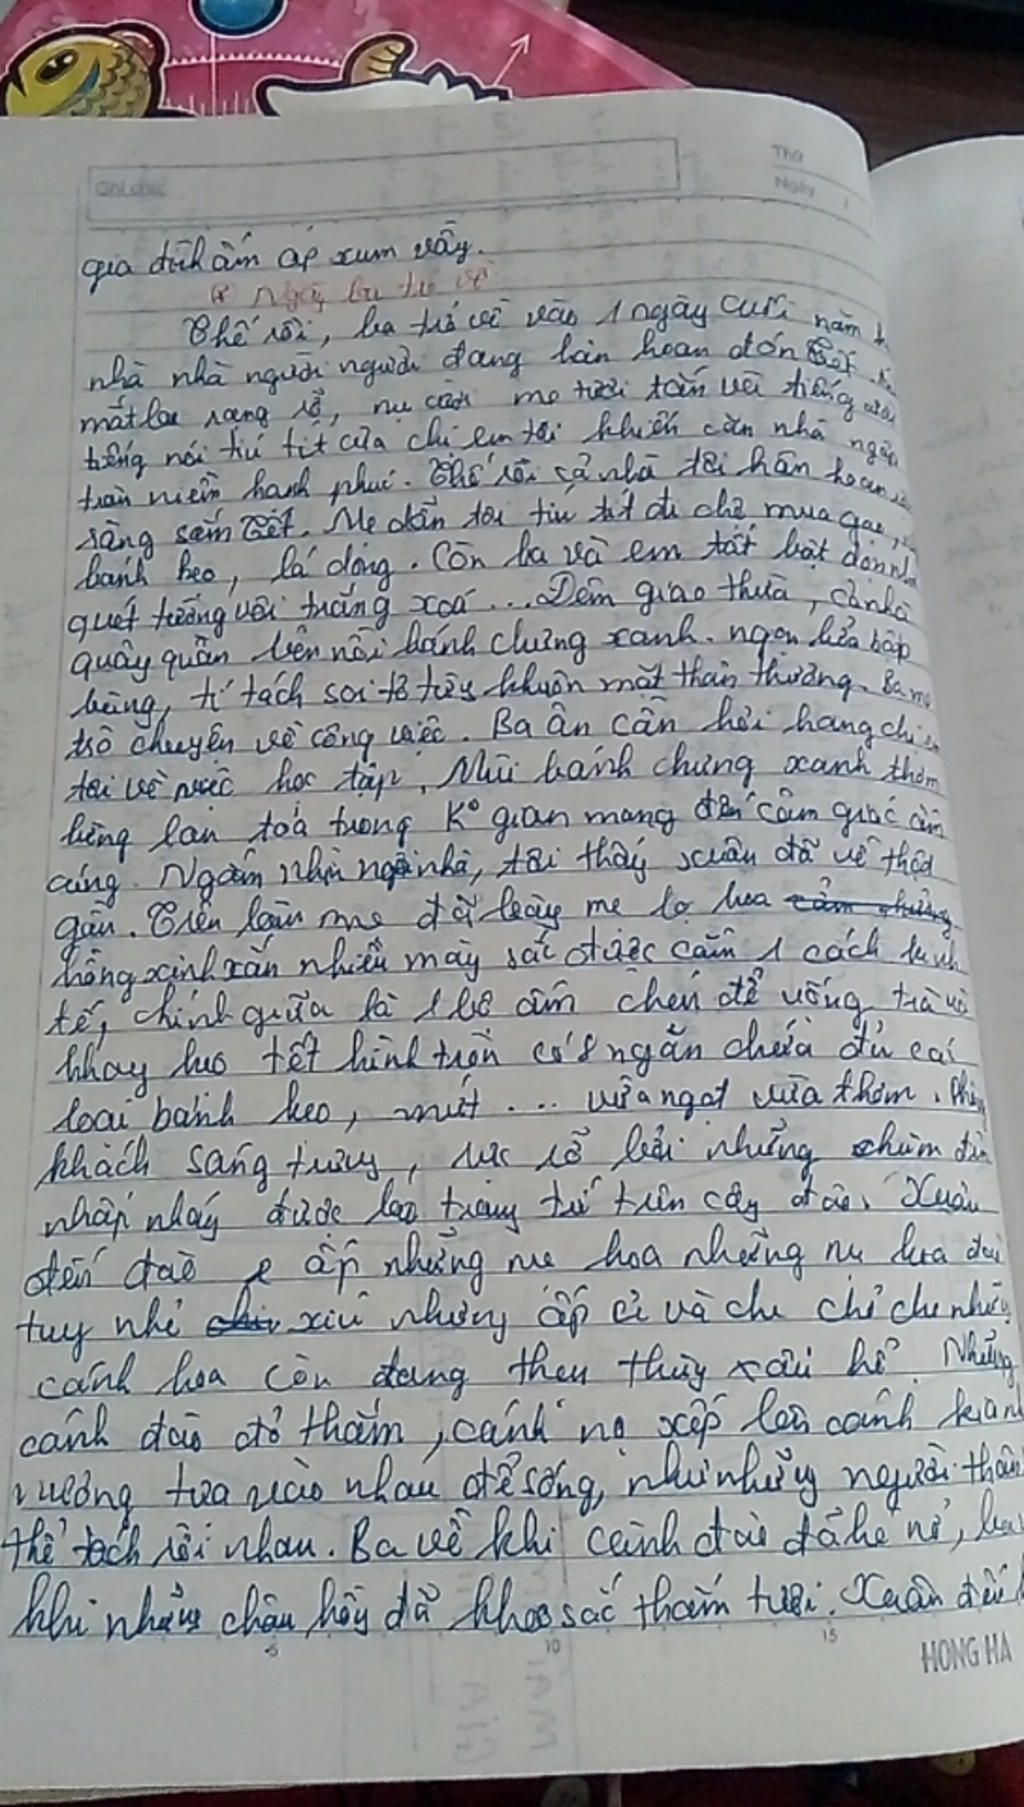 Ghi chú:
Thứ
Ngày
gia đình ấm áp xum vầy.
Ngày ba trở về
Thế rồi, ba trở về vào 1 ngày cuối năm
nhà nhà người người đang hân hoan đón Tết.
mắt ba rạng rỡ, nụ cười mẹ tươi tắn với tiếng
tiếng nói tíu tít của chị em tôi khiến căn nhà ngập
tràn niềm hạnh phúc. Thế rồi cả nhà tôi hân hoan
sắng sắm Tết. Mẹ dẫn tôi tíu tít đi chợ mua gạo,
bánh kẹo, lá dong. Còn ba và em tất bật dọn
quét tường vôi trắng xoá... Đêm giao thừa, cả nhà
quây quần bên nồi bánh chưng xanh. ngọn lửa bập
bùng, tí tách soi tỏ từng khuôn mặt thân thương. Ba mẹ
trò chuyện về công việc. Ba ân cần hỏi han chị
tôi về việc học tập. Mùi bánh chưng xanh thơm
lừng lan toả trong K° gian mang đến cảm giác ấm
cúng. Ngắm nhìn ngôi nhà, tôi thấy xuân đã về thật
gần. Trên bàn mẹ đã bày me lọ hoa
hồng xinh xắn nhiều mày sắc được cắm 1 cách tinh
tế, chính giữa là 1 bộ ấm chén để uống trà và
khay keo tết hình tròn có 8 ngăn chứa đủ các
loại bánh keo, mứt... vừa ngọt vừa thơm.
khách sang trọng, rực rỡ bởi những chùm đèn
nhấp nháy được ba trang trí trên cây đào. Xuân
đến đào e ấp những nụ hoa những nụ hoa đào
tuy nhỏ xíu nhưng ấp ủ và che chở cho những
cánh hoa còn đang then thùng xấu hổ. Những
cánh đào đỏ thắm, cánh nọ xếp lên cánh kia
vương tựa vào nhau để sống, như những người thân
thể tách rời nhau. Ba về khi cành đào đã hé nở,
khi những chậu hồng đã khoe sắc thắm tươi. Xuân đến
5 10 15
HONG HA